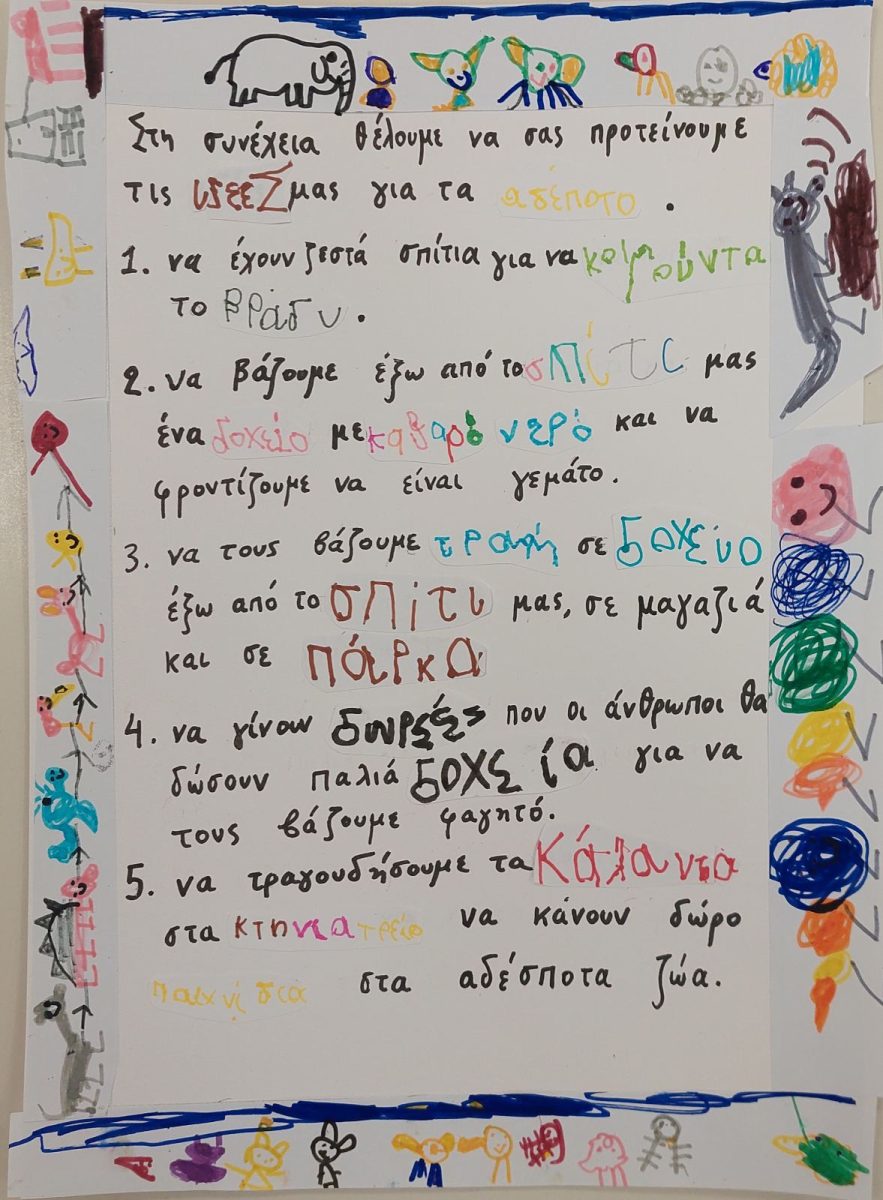 Στη συνέχεια θέλουμε να σας προτείνουμε
τις ιδεεΣ μας για τα αδέποτο .
1. να έχουν ζεστά σπίτια για να κοιμούντα
το βράδυ .
2. να βάζουμε έξω από το σπίτι μας
ένα δοχείο με καθαρό νερό και να
φροντίζουμε να είναι γεμάτο.
3. να τους βάζουμε τροφή σε δοχείο
έξω από το σπίτι μας, σε μαγαζιά
και σε πάρκα
4. να γίνουν δωρεές που οι άνθρωποι θα
δώσουν παλιά δοχεία για να
τους βάζουμε φαγητό.
5. να τραγουδήσουμε τα Κάλαντα
στα κτηνιατρείο να κάνουν δώρο
παιχνίδια στα αδέσποτα ζώα.